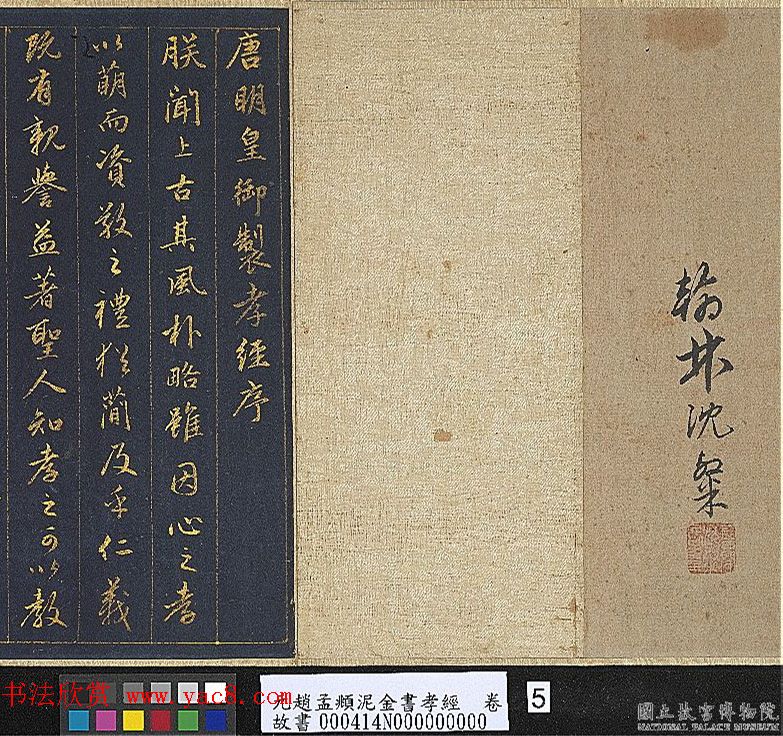 翰林沈粲
唐明皇御製孝經序
朕聞上古其風朴略雖因心之孝
以萌而資敬之禮猶簡及乎仁義
既有親譽益著聖人知孝之可以教
书法欣赏 www.yac8.com
元趙孟頫泥金書孝經 卷
故書000414N000000000
5
國立故宮博物院
NATIONAL PALACE MUSEUM